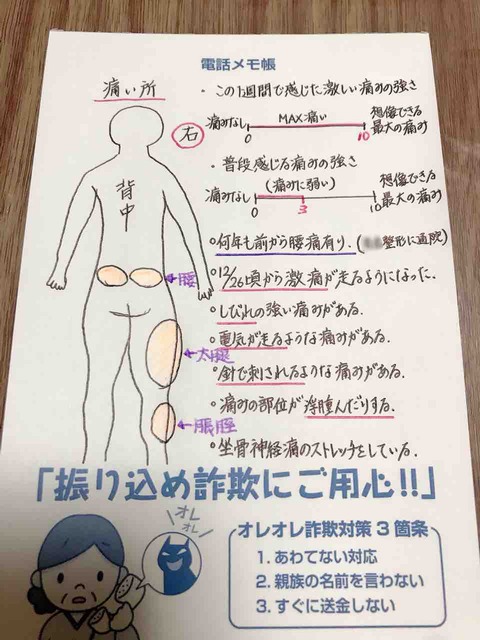 電話メモ帳
痛い所
右
背中
腰
太腿
脹脛
・この1週間で感じた激しい痛みの強さ
痛みなし
MAX痛い
想像できる
最大の痛み
0
10
・普段感じる痛みの強さ
(痛みに弱い)
痛みなし
想像できる
最大の痛み
0
3
10
○何年も前から腰痛有り、(整形に通院)
○12/26頃から激痛が走るようになった.
○しびれの強い痛みがある.
○電気が走るような痛みがある.
○針で刺されるような痛みがある.
○痛みの部位が浮腫んだりする.
○坐骨神経痛のストレッチをしている.
「振り込め詐欺にご用心!!」
オレ
オレ
オレオレ詐欺対策3箇条
1. あわてない対応
2. 親族の名前を言わない
3. すぐに送金しない